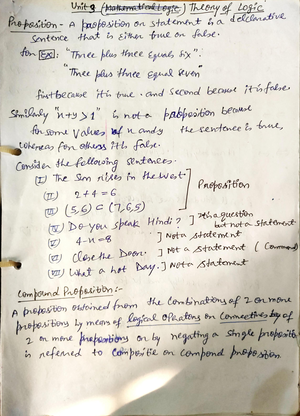 Unit 3 (Mathematical Logic) Theory of Logic
Proposition - A proposition or statement is a declarative
sentence that is either true or false.
for Ex: "Three plus three equals six".
"Three plus three equal seven"
first because it is true. and second because it is false.
Similarly "x+y>1" is not a proposition because
for some values of x and y the sentence is true,
whereas for others it is false.
Consider the following sentences.
(I) The Sun rises in the West.
(II) 2+4=6
Proposition
(III) (5,6) ⊂ (7,6,5)
(IV) Do you speak Hindi? ] It's a question
but not a statement
(V) 4-x=8 ] Not a statement
(VI) Close the Door. ] Not a statement (Command)
(VII) What a hot Day. ] Not a statement
Compound Proposition:-
A proposition obtained from the combinations of 2 or more
propositions by means of logical operators or connectives of
2 or more propositions or by negating a single proposition
is referred to composite or compound proposition